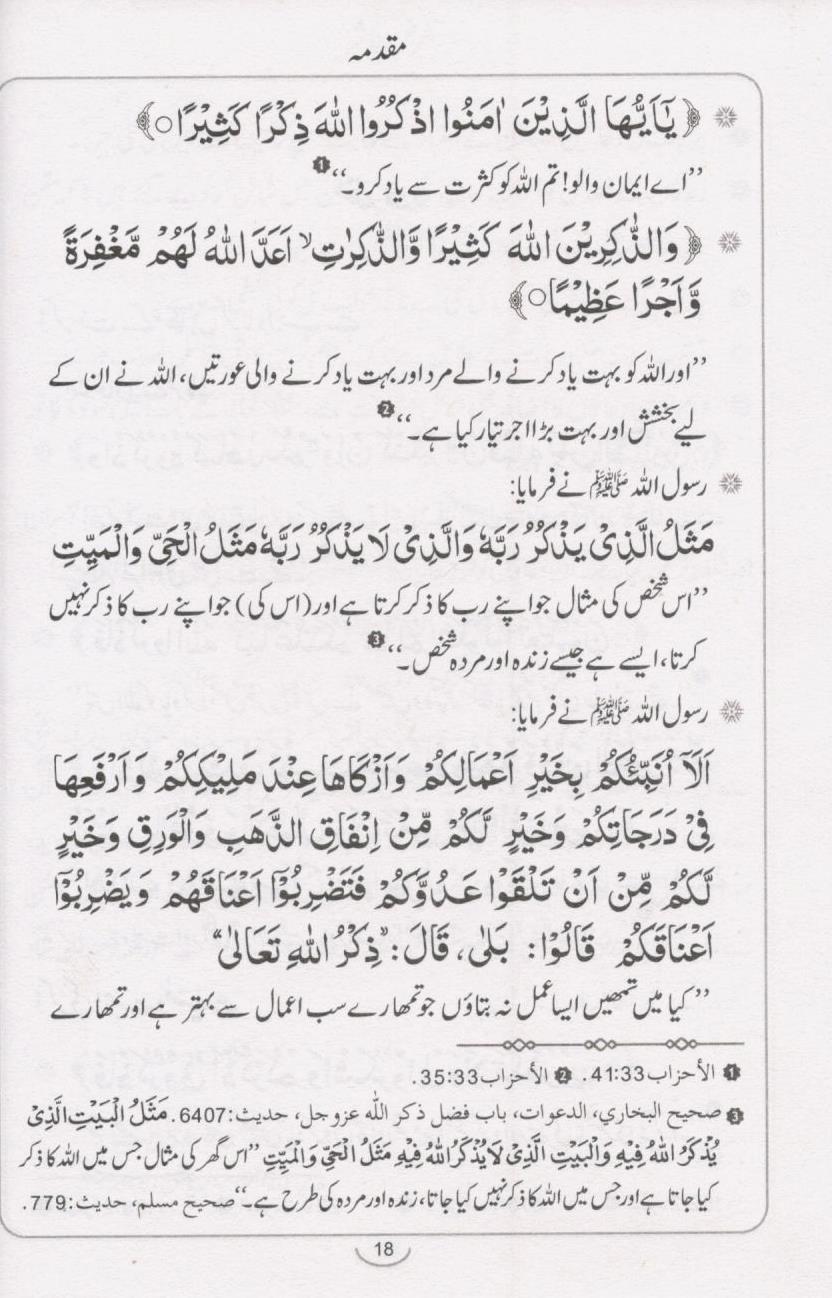 مقدمہ
﴿ يٰۤاَيُّهَا الَّذِيْنَ اٰمَنُوا اذْكُرُوا اللّٰهَ ذِكْرًا كَثِيْرًا ○ ﴾
’’اے ایمان والو! تم اللہ کو کثرت سے یاد کرو۔‘‘ ❶
﴿ وَالذّٰكِرِيْنَ اللّٰهَ كَثِيْرًا وَّالذّٰكِرٰتِ ۙ اَعَدَّ اللّٰهُ لَهُمْ مَّغْفِرَةً
وَّاَجْرًا عَظِيْمًا ○ ﴾
’’اور اللہ کو بہت یاد کرنے والے مرد اور بہت یاد کرنے والی عورتیں، اللہ نے ان کے
لیے بخشش اور بہت بڑا اجر تیار کیا ہے۔‘‘ ❷
رسول اللہ ﷺ نے فرمایا:
مَثَلُ الَّذِیْ يَذْكُرُ رَبَّهٗ وَالَّذِیْ لَا يَذْكُرُ رَبَّهٗ مَثَلُ الْحَیِّ وَالْمَيِّتِ
’’اس شخص کی مثال جو اپنے رب کا ذکر کرتا ہے اور (اس کی) جو اپنے رب کا ذکر نہیں
کرتا، ایسے ہے جیسے زندہ اور مردہ شخص۔‘‘ ❸
رسول اللہ ﷺ نے فرمایا:
اَلَآ اُنَبِّئُكُمْ بِخَيْرِ اَعْمَالِكُمْ وَاَزْكَاهَا عِنْدَ مَلِيْكِكُمْ وَاَرْفَعِهَا
فِیْ دَرَجَاتِكُمْ وَخَيْرٍ لَّكُمْ مِّنْ اِنْفَاقِ الذَّهَبِ وَالْوَرِقِ وَخَيْرٍ
لَّكُمْ مِّنْ اَنْ تَلْقَوْا عَدُوَّكُمْ فَتَضْرِبُوْٓا اَعْنَاقَهُمْ وَيَضْرِبُوْٓا
اَعْنَاقَكُمْ قَالُوْا: بَلٰی، قَالَ: ’’ذِكْرُ اللّٰهِ تَعَالٰی‘‘
’’کیا میں تمھیں ایسا عمل نہ بتاؤں جو تمھارے سب اعمال سے بہتر ہے اور تمھارے
❶ الأحزاب 41:33. ❷ الأحزاب 35:33.
❸ صحيح البخاري، الدعوات، باب فضل ذكر الله عزوجل، حديث:6407. مَثَلُ الْبَيْتِ الَّذِیْ
يُذْكَرُ اللّٰهُ فِيْهِ وَالْبَيْتِ الَّذِیْ لَا يُذْكَرُ اللّٰهُ فِيْهِ مَثَلُ الْحَیِّ وَالْمَيِّتِ ’’اس گھر کی مثال جس میں اللہ کا ذکر
کیا جاتا ہے اور جس میں اللہ کا ذکر نہیں کیا جاتا، زندہ اور مردہ کی طرح ہے۔‘‘ صحيح مسلم، حديث:779.
18